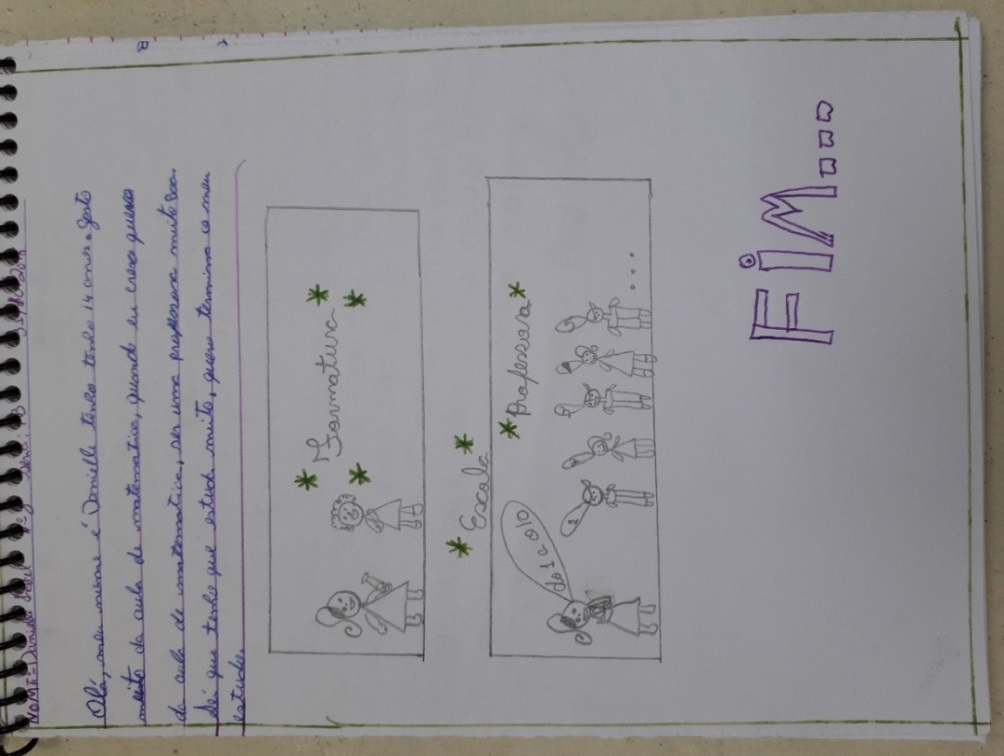 NOME: Danielle
Olá, meu nome é Danielle tenho tenho 14 anos e gosto
muito da aula de matematica, quando eu cresc quero
da aula de matematica, ser uma professora muito boa.
Sei que tenho que estuda muito, quero termina o meu
estudo.
Formatura
Escola
Professora
do 1 ao 10
1
FIM...